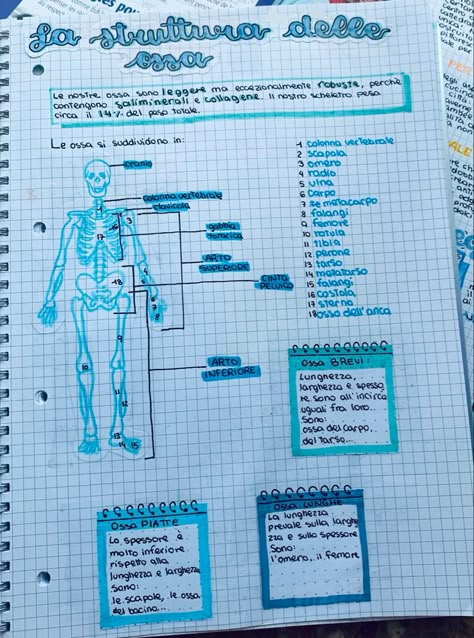 La struttura delle
ossa
Le nostre ossa sono leggere ma eccezionalmente robuste, perchè
contengono sali minerali e collagene. Il nostro scheletro pesa
circa il 14% del peso totale.
Le ossa si suddividono in:
cranio
colonna vertebrale
clavicola
gabbia
toracica
ARTO
SUPERIORE
CINTO
PELVICO
ARTO
INFERIORE
1 colonna vertebrale
2 scapola
3 omero
4 radio
5 ulna
6 carpo
7 metacarpo
8 falangi
9 femore
10 rotula
11 tibia
12 perone
13 tarso
14 metatarso
15 falangi
16 costola
17 sterno
18 osso dell'anca
Ossa BREVI:
Lunghezza,
larghezza e spesso
re sono all'incirca
uguali fra loro.
Sono:
ossa del carpo,
del tarso...
Ossa PIATTE
Lo spessore è
molto inferiore
rispetto alla
lunghezza e larghezza
Sono:
le scapole, le ossa
del bacino...
Ossa LUNGHE
La lunghezza
prevale sulla larghe
zza e sullo spessore
Sono:
l'omero, il femore